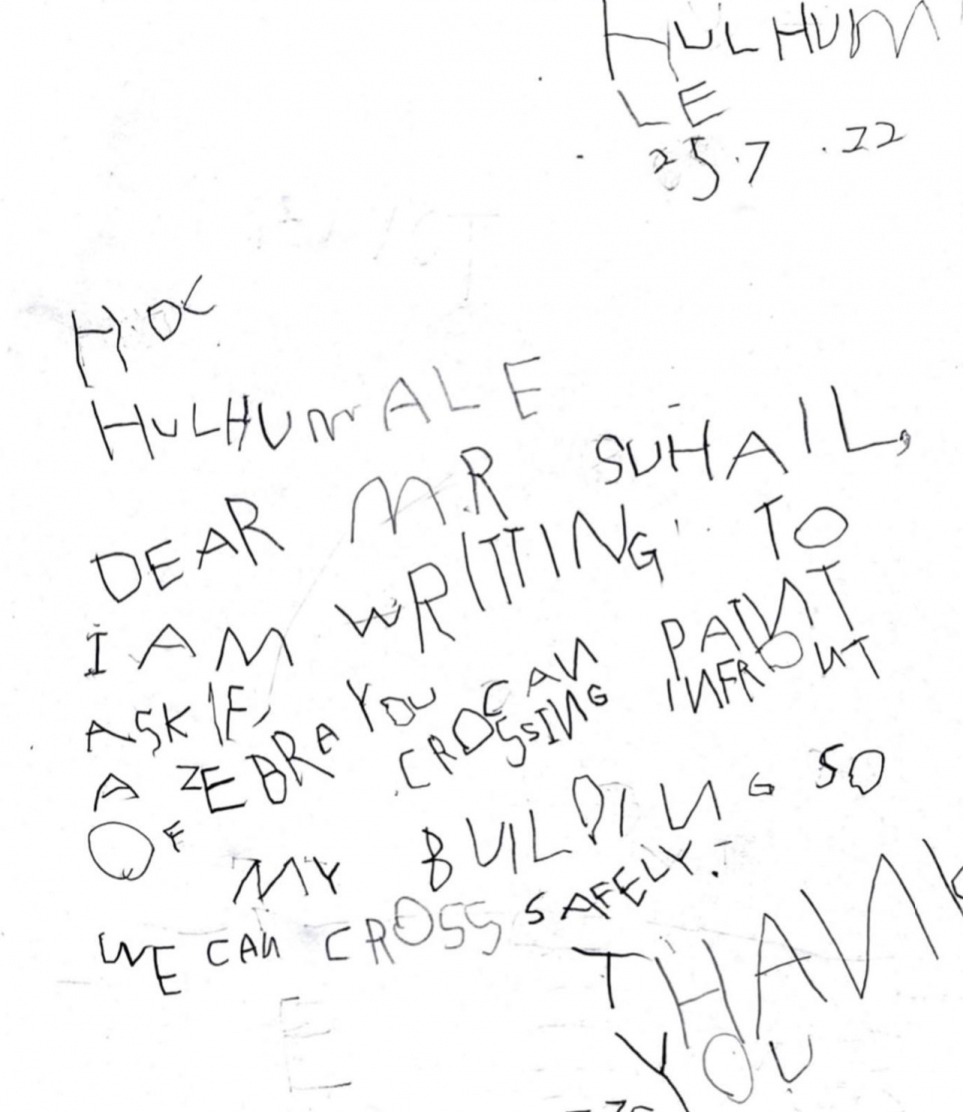 HULHUM
LE
25.7.22
HDC
HULHUMALE
DEAR MR SUHAIL,
I AM WRITTING TO
ASK IF YOU CAN PAINT
A ZEBRA CROSSING INFRONT
OF MY BUILDING SO
WE CAN CROSS SAFELY.
THANK
YOU